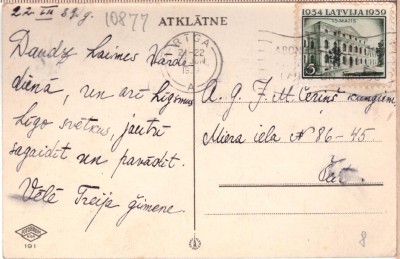 22. VI 39. g.
10877
ATKLĀTNE
RIGA
21-22
A
1934 LATVIJA 1939
15.MAIJS
5
Daudz laimes Vārda
dienā, un arī līgsmus
Līgo svētkus, jautri
sagaidīt un pavadīt.
Vēlē Treija ģimene.
A. G. J. M. Ceriņš kungam
Miera iela № 86-45.
Šeit.
191
8